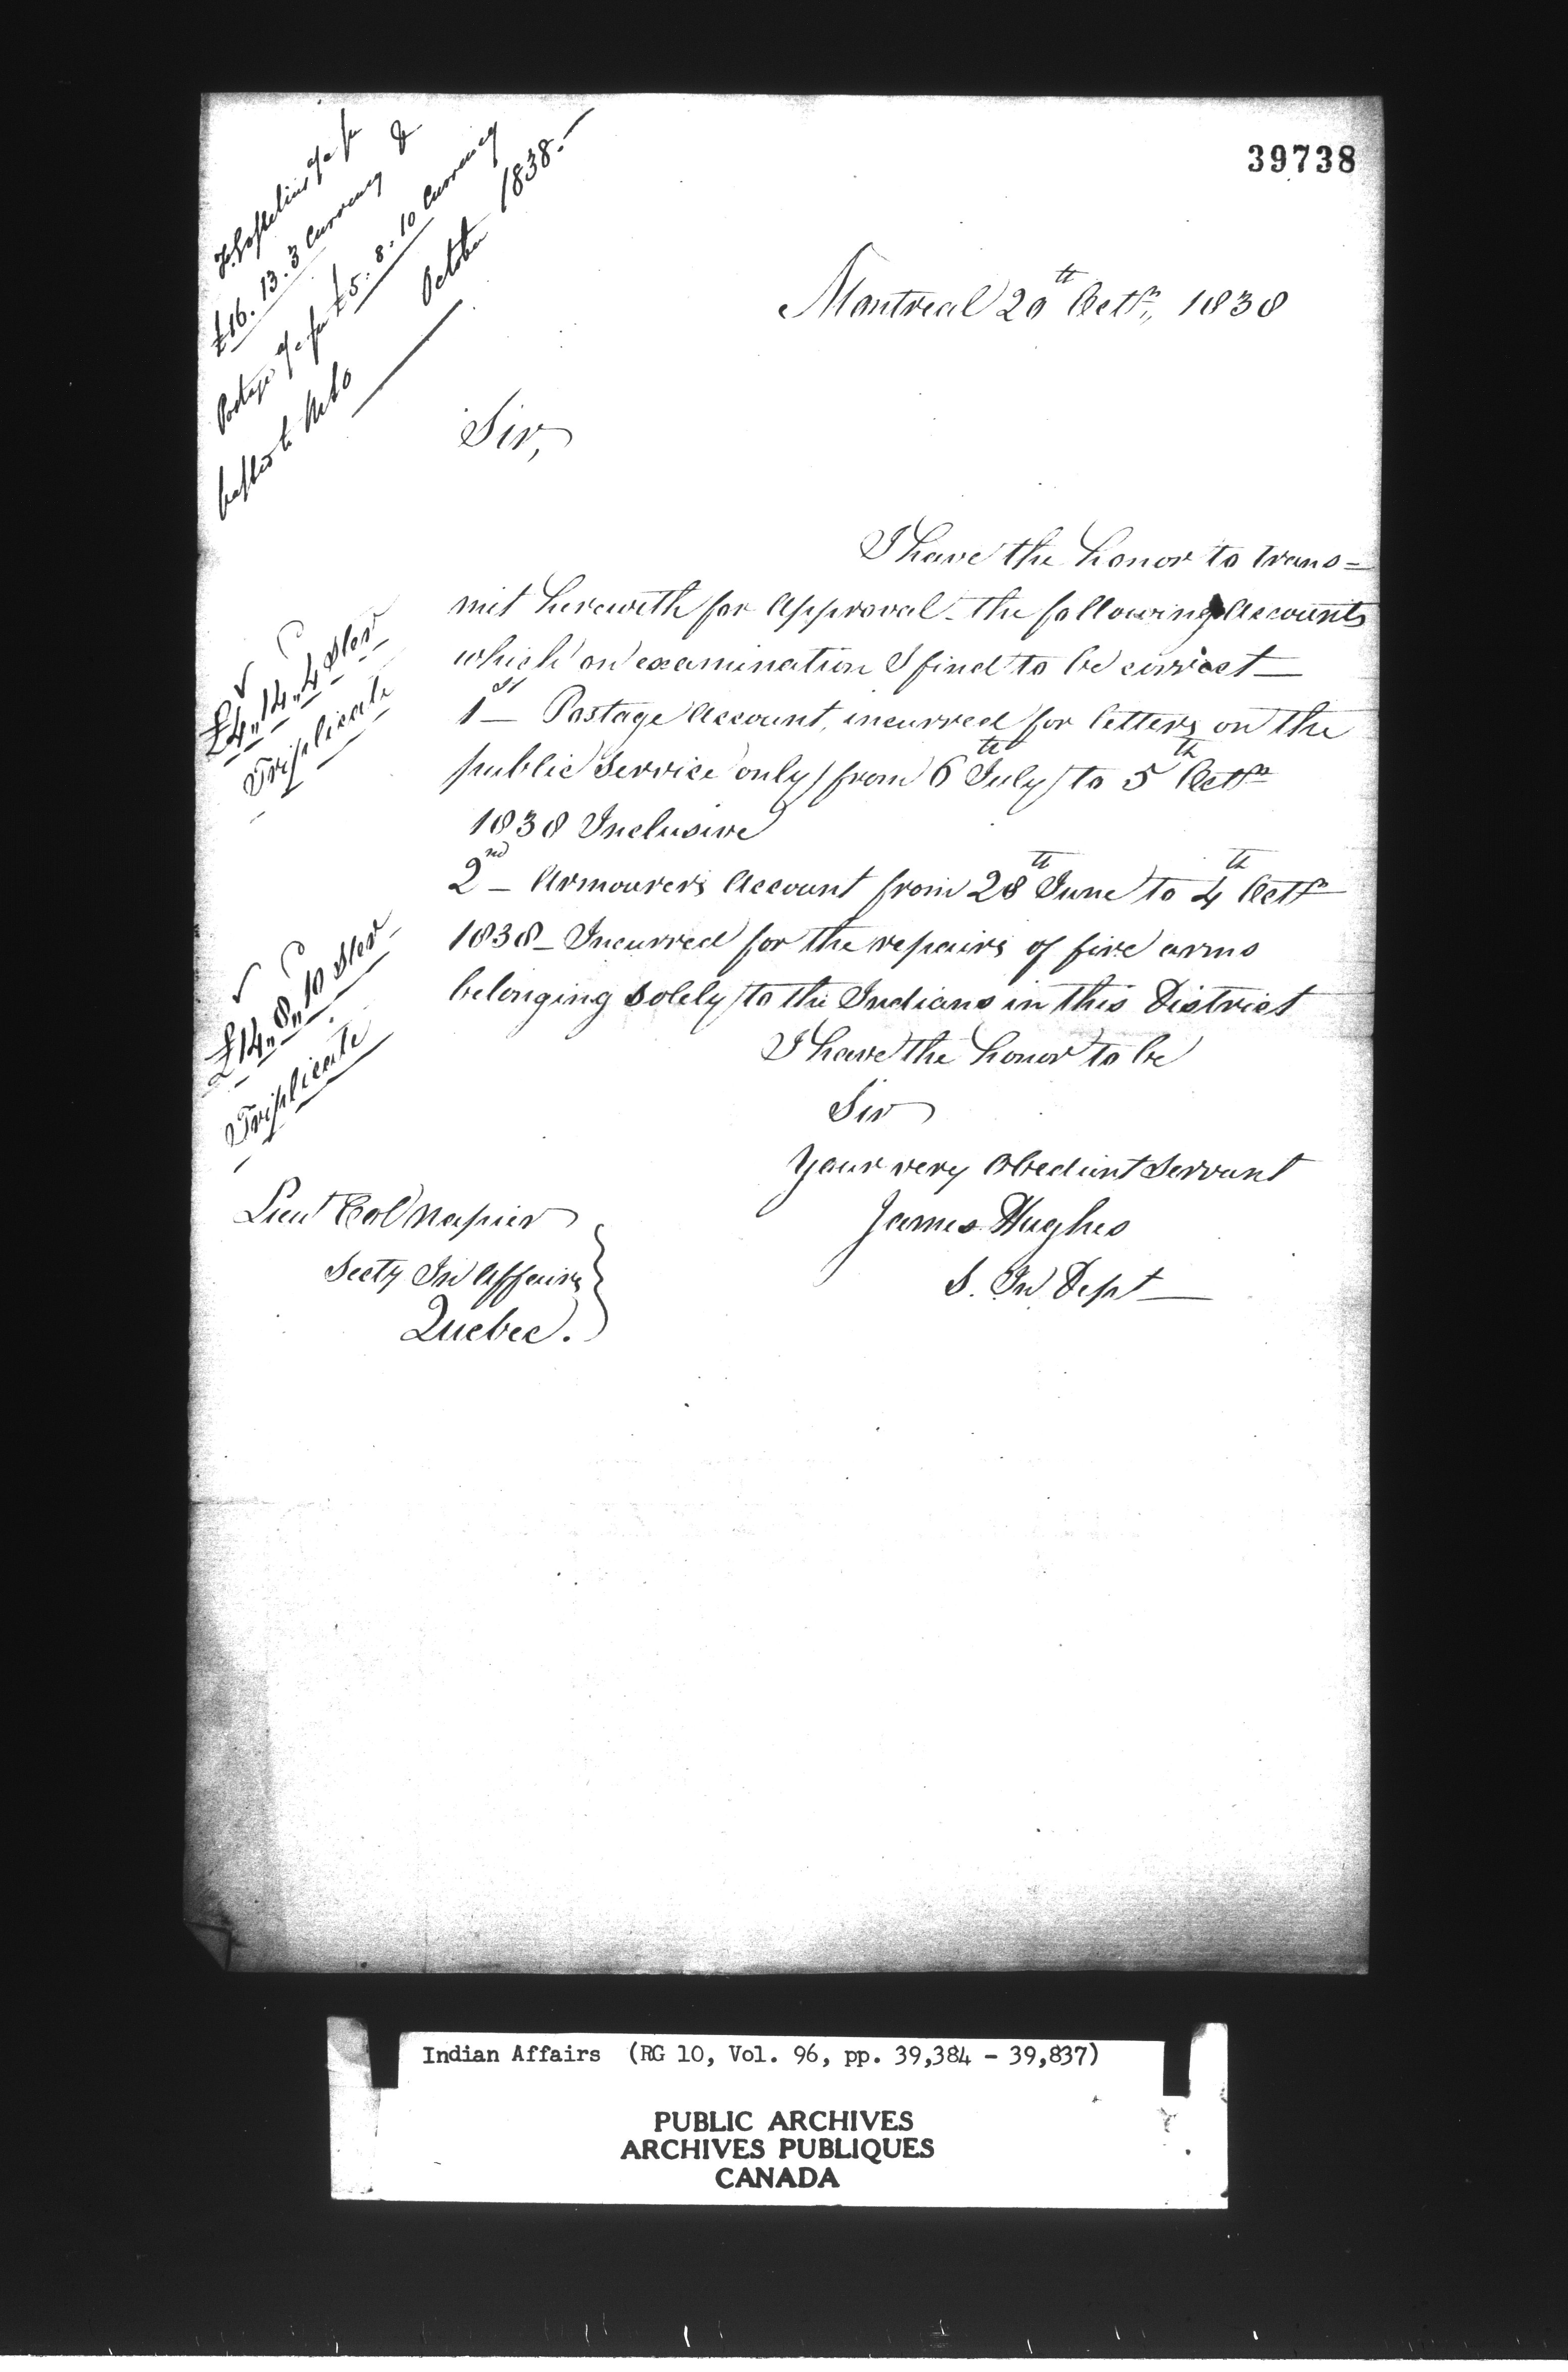 39738
£16. 13. 3 Currency &
Postage a/c for £5. 8. 10 Currency
October 1838.—
Montreal 20th Octr., 1838
Sir,
I have the honor to trans=
mit herewith for Approval. the following Accounts
which on examination I find to be correct—
£4,, 14,, 4 Ster
Triplicate
1st — Postage Account, incurred for letters on the
public Service only from 6th July to 5th Octr
1838 Inclusive
2nd — Armourers Account from 28th June to 4th Octr
1838 — Incurred for the repairs of fire arms
belonging Solely to the Indians in this District
£14,, 8,, 10 Ster
Triplicate
I have the honor to be
Sir
Your very Obedient Servant
James Hughes
S. In Dept—
Lieut Col Napier
Secty In Affairs
Quebec.
Indian Affairs (RG 10, Vol. 96, pp. 39,384 - 39,837)
PUBLIC ARCHIVES
ARCHIVES PUBLIQUES
CANADA